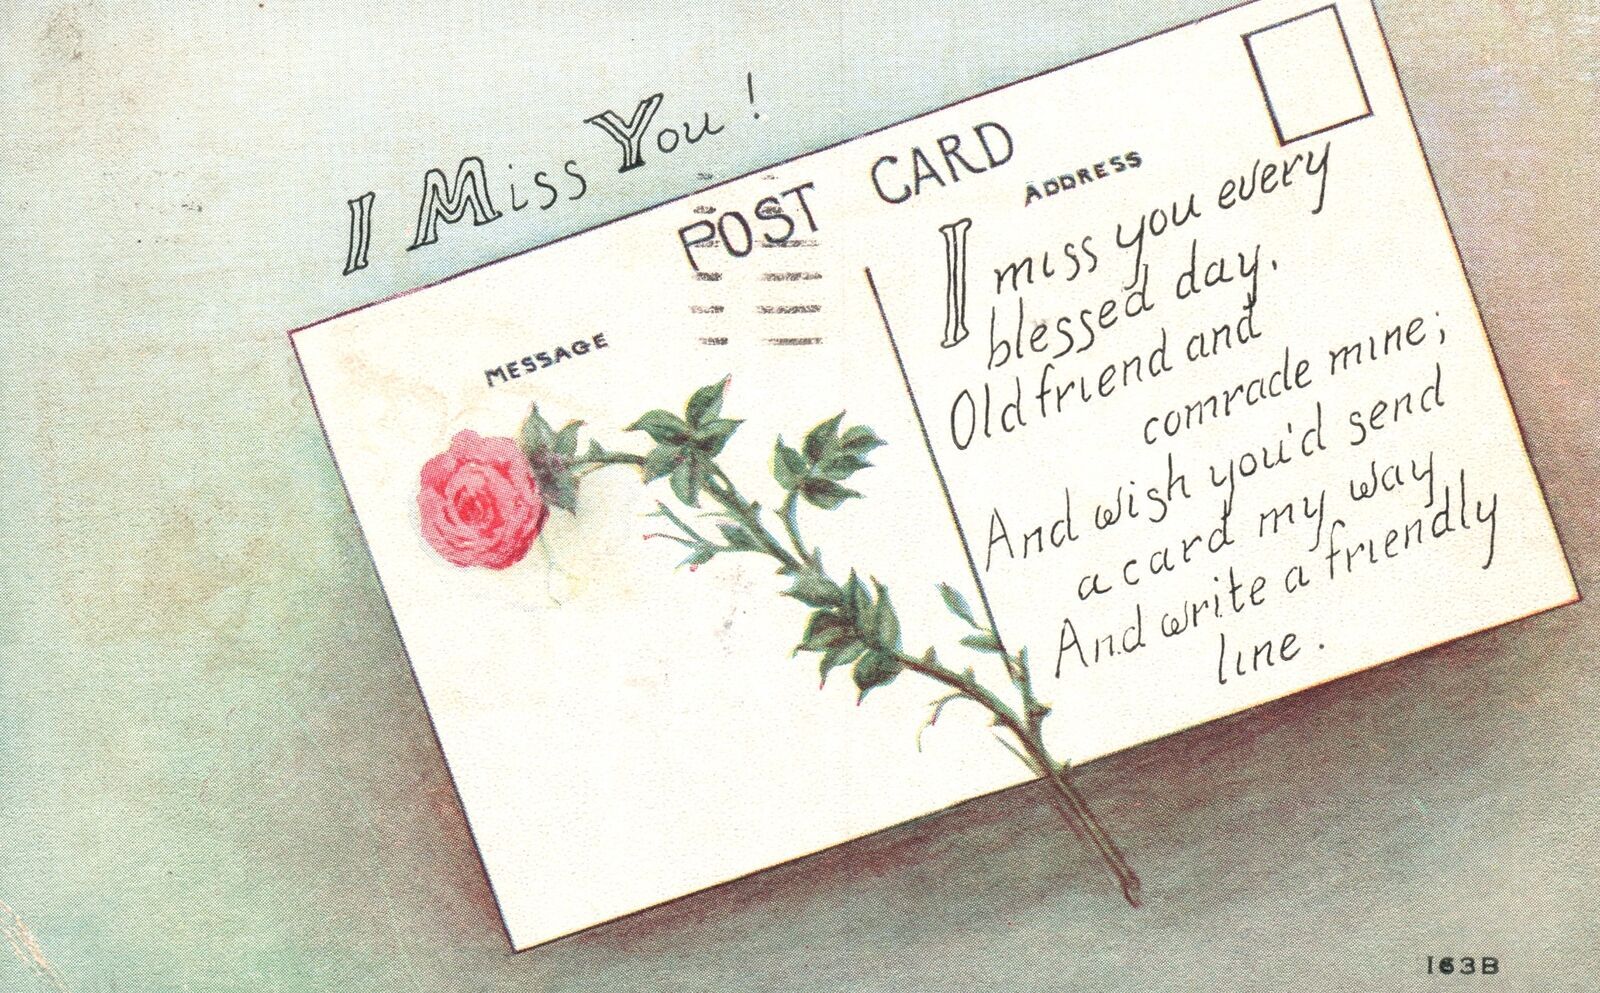 I Miss You!
POST CARD
MESSAGE
ADDRESS
I miss you every
blessed day.
Old friend and
comrade mine;
And wish you'd send
a card my way
And write a friendly
line.
163B